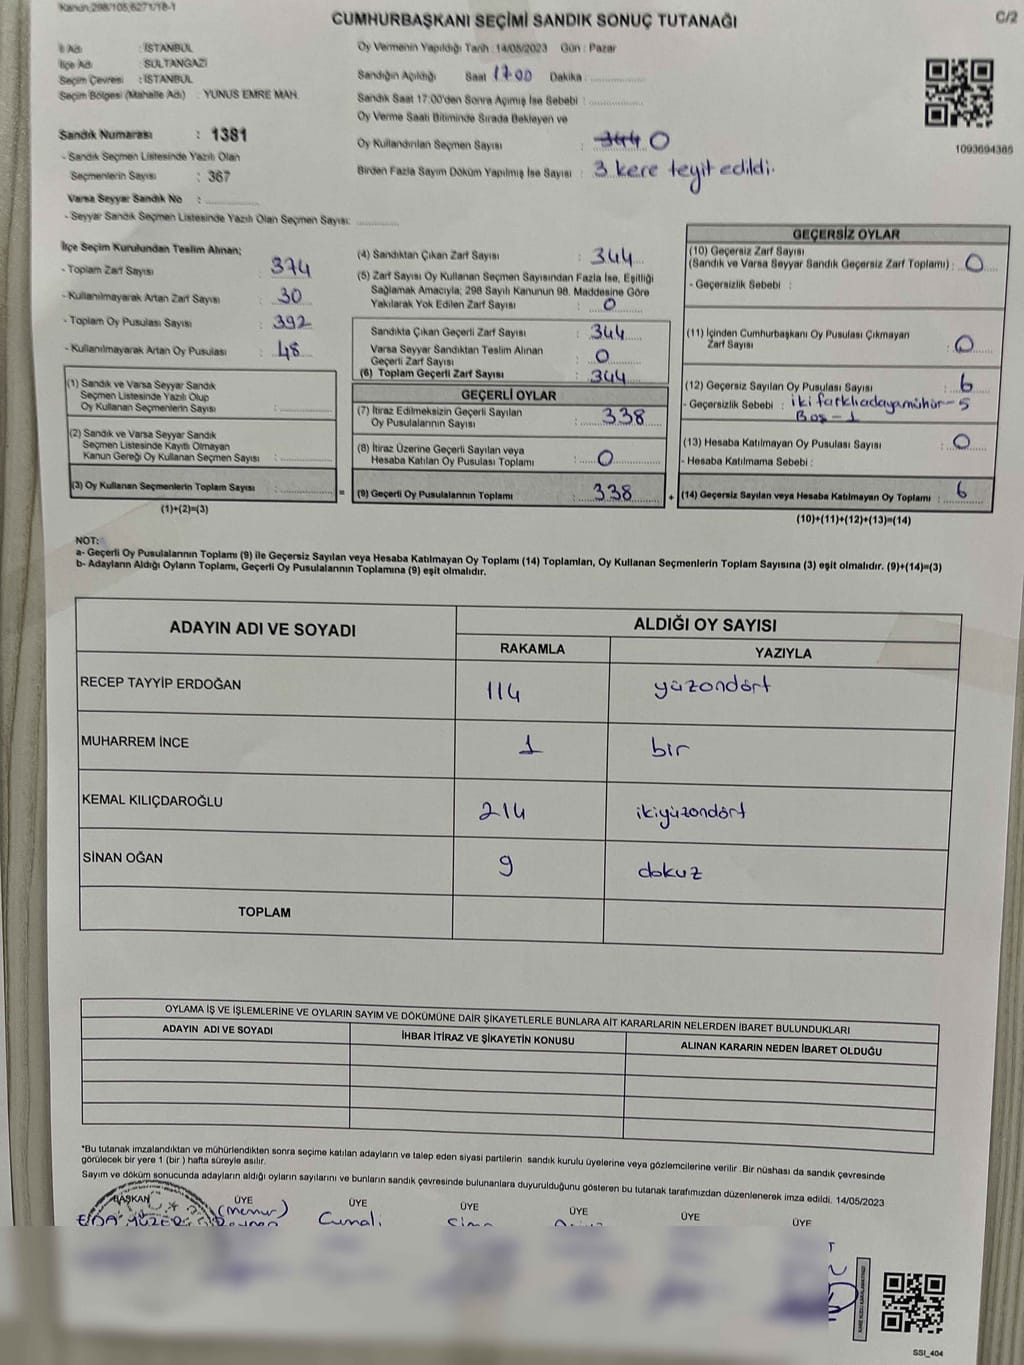 Kanun,298/105,6271/18-1
CUMHURBAŞKANI SEÇİMİ SANDIK SONUÇ TUTANAĞI
C/2
İl Adı : İSTANBUL
İlçe Adı : SULTANGAZİ
Seçim Çevresi : İSTANBUL
Seçim Bölgesi (Mahalle Adı) : YUNUS EMRE MAH.
Oy Vermenin Yapıldığı Tarih :14/05/2023 Gün : Pazar
Sandığın Açıldığı Saat 17:00 Dakika :
Sandık Saat 17:00'den Sonra Açımış İse Sebebi :
Oy Verme Saati Bitiminde Sırada Bekleyen ve
Oy Kullandırılan Seçmen Sayısı : 344 0
Birden Fazla Sayım Döküm Yapılmış İse Sayısı : 3 kere teyit edildi.
1093694385
Sandık Numarası : 1381
- Sandık Seçmen Listesinde Yazılı Olan
Seçmenlerin Sayısı : 367
Varsa Seyyar Sandık No :
- Seyyar Sandık Seçmen Listesinde Yazılı Olan Seçmen Sayısı:
İlçe Seçim Kurulundan Teslim Alınan;
- Toplam Zarf Sayısı : 374
- Kullanılmayarak Artan Zarf Sayısı : 30
- Toplam Oy Pusulası Sayısı : 392
- Kullanılmayarak Artan Oy Pusulası : 48
(1) Sandık ve Varsa Seyyar Sandık
Seçmen Listesinde Yazılı Olup
Oy Kullanan Seçmenlerin Sayısı :
(2) Sandık ve Varsa Seyyar Sandık
Seçmen Listesinde Kayıtlı Olmayan
Kanun Gereği Oy Kullanan Seçmen Sayısı :
(3) Oy Kullanan Seçmenlerin Toplam Sayısı :
(1)+(2)=(3)
(4) Sandıktan Çıkan Zarf Sayısı : 344
(5) Zarf Sayısı Oy Kullanan Seçmen Sayısından Fazla İse, Eşitliği
Sağlamak Amacıyla; 298 Sayılı Kanunun 98. Maddesine Göre
Yakılarak Yok Edilen Zarf Sayısı : 0
Sandıkta Çıkan Geçerli Zarf Sayısı : 344
Varsa Seyyar Sandıktan Teslim Alınan
Geçerli Zarf Sayısı : 0
(6) Toplam Geçerli Zarf Sayısı : 344
GEÇERLİ OYLAR
(7) İtiraz Edilmeksizin Geçerli Sayılan
Oy Pusulalarının Sayısı : 338
(8) İtiraz Üzerine Geçerli Sayılan veya
Hesaba Katılan Oy Pusulası Toplamı : 0
=
(9) Geçerli Oy Pusulalarının Toplamı : 338
+
GEÇERSİZ OYLAR
(10) Geçersiz Zarf Sayısı
(Sandık ve Varsa Seyyar Sandık Geçersiz Zarf Toplamı) : 0
- Geçersizlik Sebebi :
(11) İçinden Cumhurbaşkanı Oy Pusulası Çıkmayan
Zarf Sayısı : 0
(12) Geçersiz Sayılan Oy Pusulası Sayısı : 6
- Geçersizlik Sebebi : iki farklı adaya mühür - 5
Boş - 1
(13) Hesaba Katılmayan Oy Pusulası Sayısı : 0
- Hesaba Katılmama Sebebi :
(14) Geçersiz Sayılan veya Hesaba Katılmayan Oy Toplamı : 6
(10)+(11)+(12)+(13)=(14)
NOT:
a- Geçerli Oy Pusulalarının Toplamı (9) ile Geçersiz Sayılan veya Hesaba Katılmayan Oy Toplamı (14) Toplamları, Oy Kullanan Seçmenlerin Toplam Sayısına (3) eşit olmalıdır. (9)+(14)=(3)
b- Adayların Aldığı Oyların Toplamı, Geçerli Oy Pusulalarının Toplamına (9) eşit olmalıdır.
ADAYIN ADI VE SOYADI
ALDIĞI OY SAYISI
RAKAMLA YAZIYLA
RECEP TAYYİP ERDOĞAN 114 yüzondört
MUHARREM İNCE 1 bir
KEMAL KILIÇDAROĞLU 214 ikiyüzondört
SİNAN OĞAN 9 dokuz
TOPLAM
OYLAMA İŞ VE İŞLEMLERİNE VE OYLARIN SAYIM VE DÖKÜMÜNE DAİR ŞİKAYETLERLE BUNLARA AİT KARARLARIN NELERDEN İBARET BULUNDUKLARI
ADAYIN ADI VE SOYADI İHBAR İTİRAZ VE ŞİKAYETİN KONUSU ALINAN KARARIN NEDEN İBARET OLDUĞU
*Bu tutanak imzalandıktan ve mühürlendikten sonra seçime katılan adayların ve talep eden siyasi partilerin sandık kurulu üyelerine veya gözlemcilerine verilir .Bir nüshası da sandık çevresinde
görülecek bir yere 1 (bir ) hafta süreyle asılır.
Sayım ve döküm sonucunda adayların aldığı oyların sayılarını ve bunların sandık çevresinde bulunanlara duyurulduğunu gösteren bu tutanak tarafımızdan düzenlenerek imza edildi. 14/05/2023
BAŞKAN ÜYE ÜYE ÜYE ÜYE ÜYE ÜYE
(memur)
Cumali
SSI_404